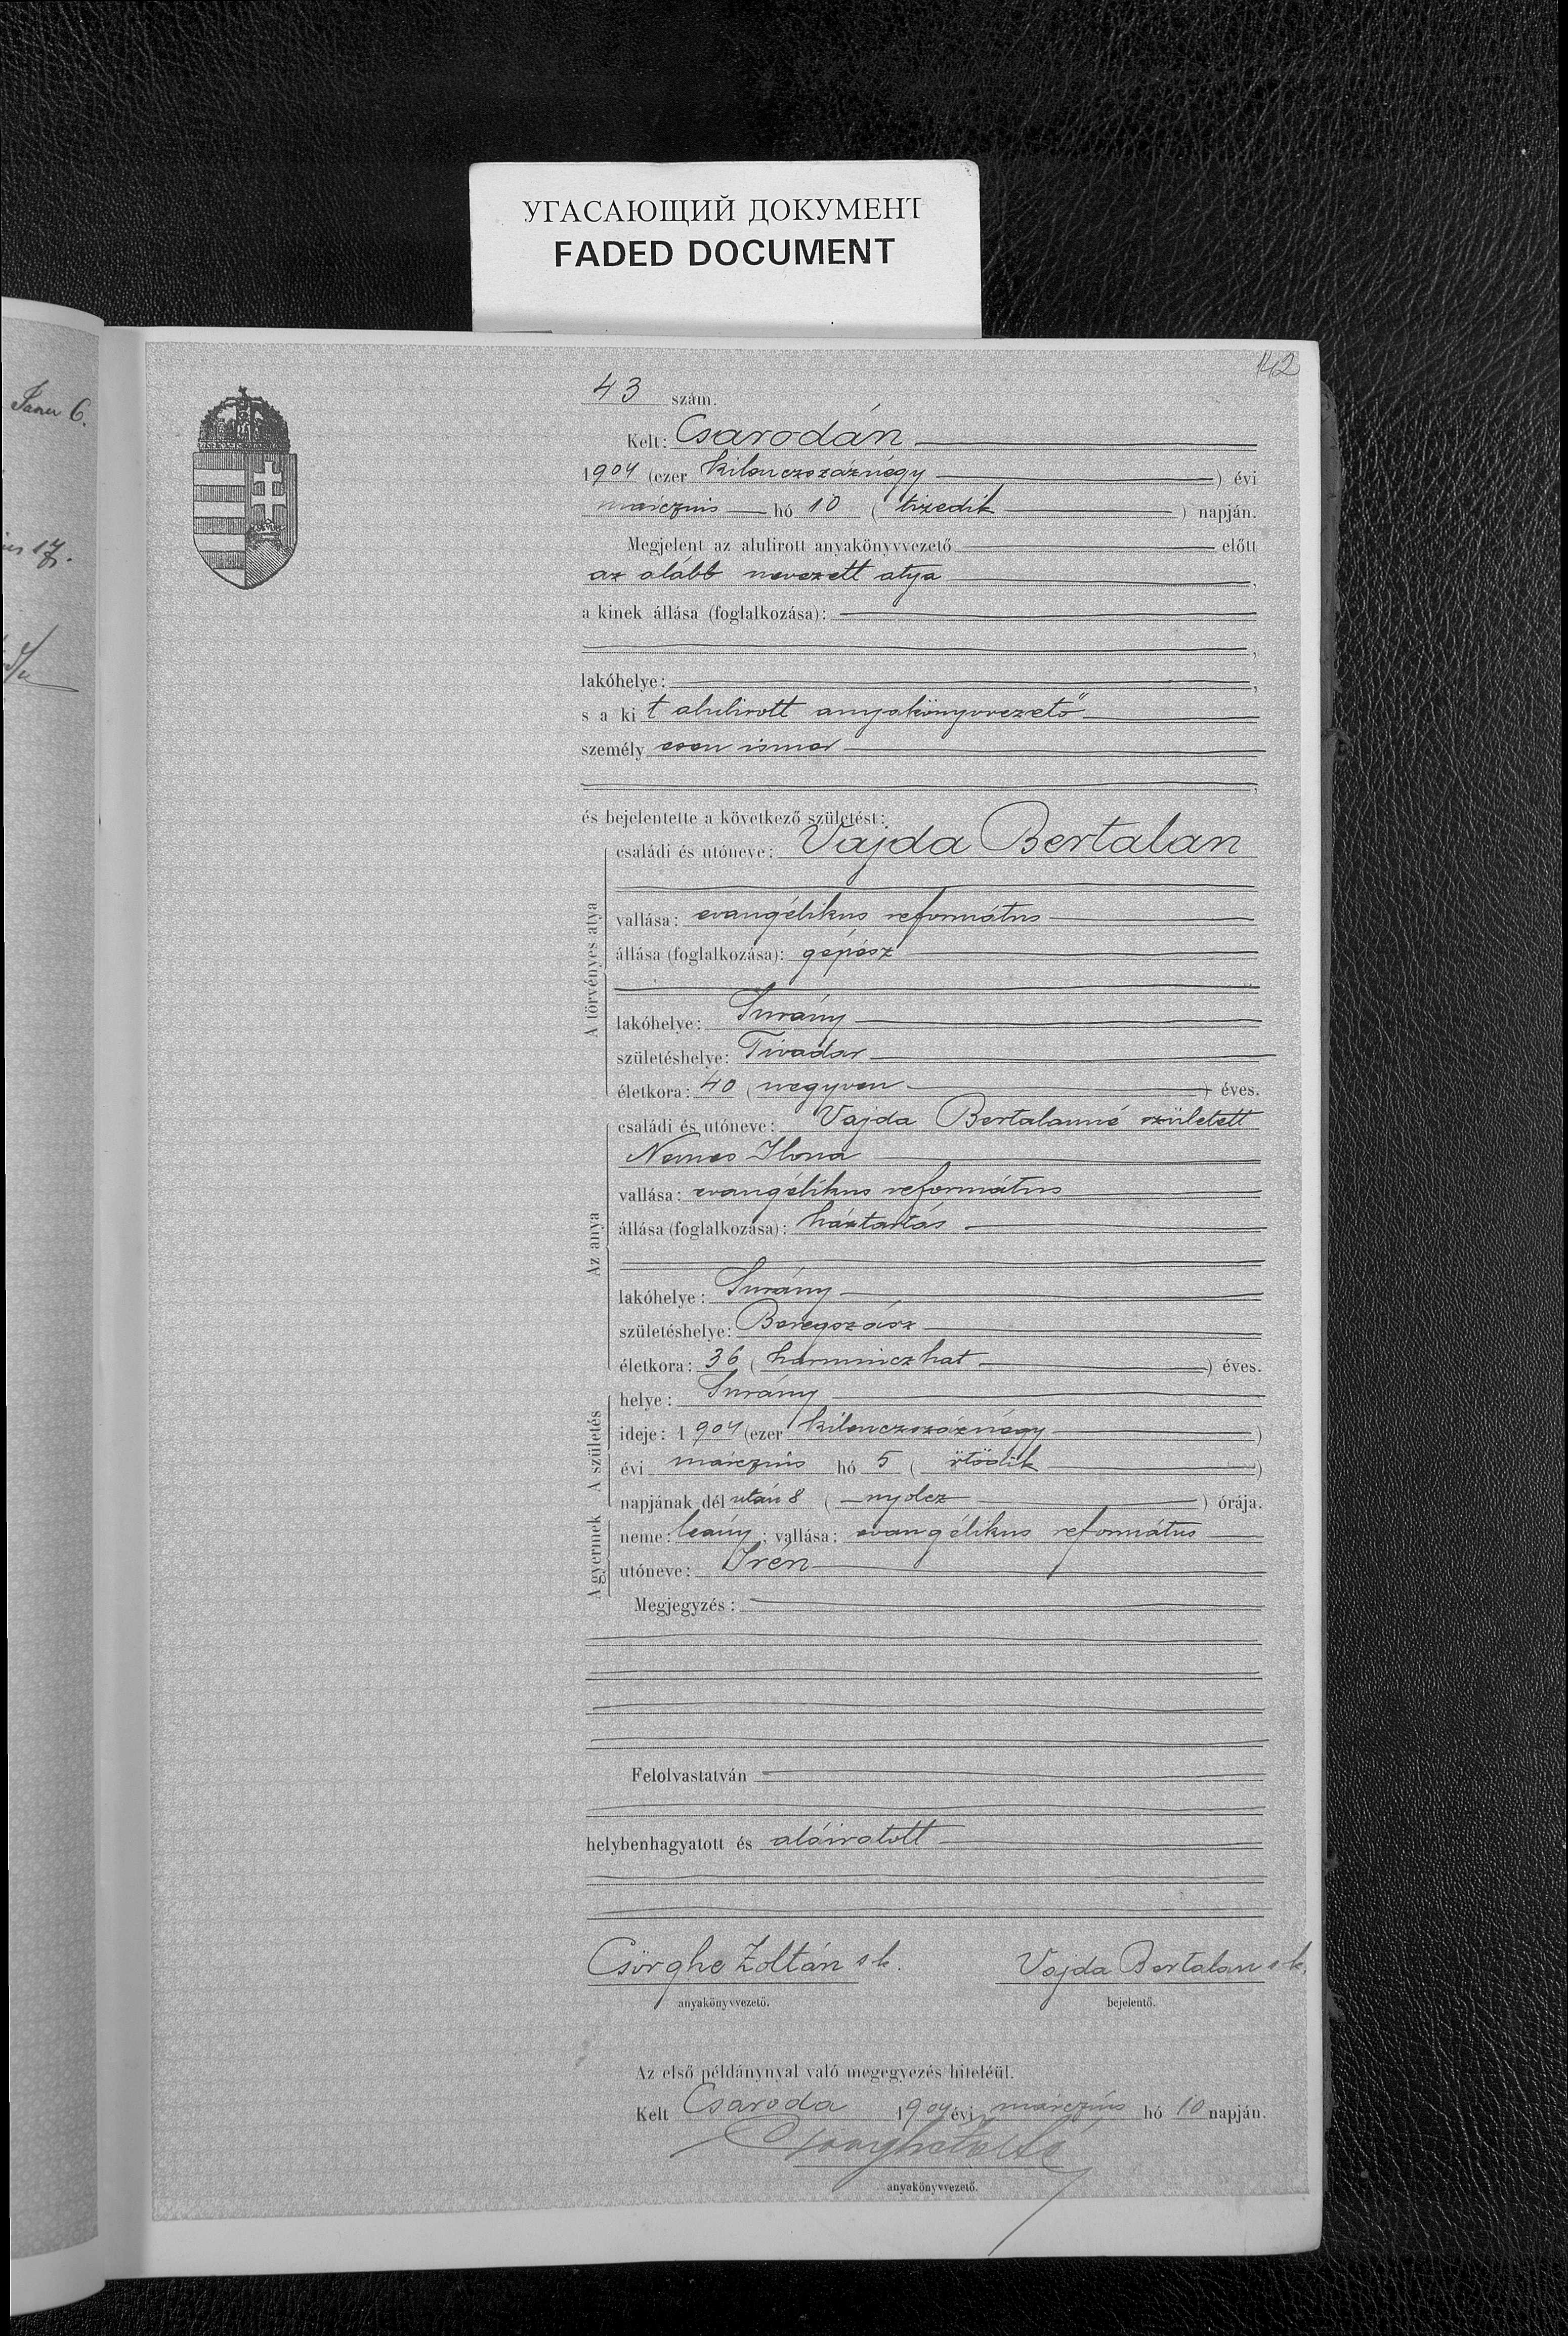 УГАСАЮЩИЙ ДОКУМЕНТ
FADED DOCUMENT
142
6.
17.
43 szám.
Kelt: Csarodán
1904 (ezer kilenczszáznégy) évi
márczius hó 10 (tizedik) napján.
Megjelent az alulirott anyakönyvvezető előtt
az alább nevezett atya,
a kinek állása (foglalkozása):
,
lakóhelye: ,
s a kit alulirott anyakönyvvezető
személyesen ismer
,
és bejelentette a következő születést:
A törvényes atya
családi és utóneve: Vajda Bertalan
vallása: evangélikus református
állása (foglalkozása): gépész
lakóhelye: Surány
születéshelye: Tivadar
életkora: 40 (negyven) éves.
Az anya
családi és utóneve: Vajda Bertalanné született
Nemes Ilona
vallása: evangélikus református
állása (foglalkozása): háztartás
lakóhelye: Surány
születéshelye: Beregszász
életkora: 36 (harminczhat) éves.
A születés
helye: Surány
ideje: 1904 (ezer kilenczszáznégy)
évi márczius hó 5 (ötödik)
napjának dél után 8 (nyolcz) órája.
A gyermek
neme: leány; vallása: evangélikus református
utóneve: Irén
Megjegyzés:
Felolvastatván
helybenhagyatott és aláiratott
Csörghe Zoltán s k. Vajda Bertalan s k.
anyakönyvvezető. bejelentő.
Az első példánynyal való megegyezés hiteléül.
Kelt Csaroda 1904 évi márczius hó 10 napján.
anyakönyvvezető.